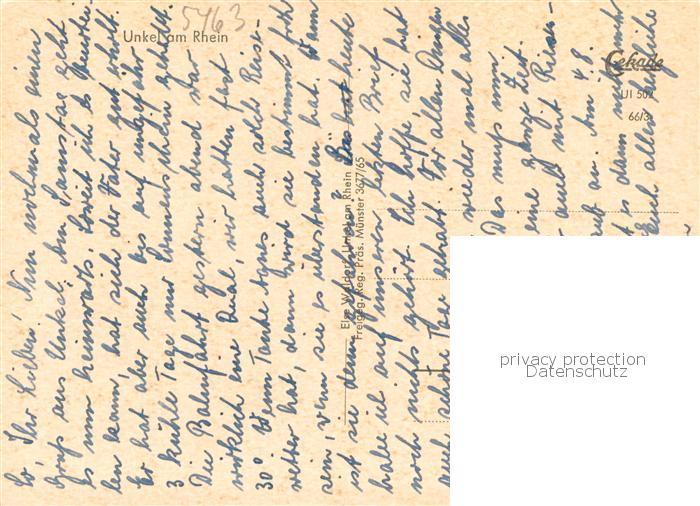 5463
Unkel am Rhein
Cekade
UI 502
66/3
Else Waldorf, Unkel am Rhein
Freigeg. Reg. Präs. Münster 3677/65
So, Ihr Lieben! Nun nochmals einen
Gruß aus Unkel. Am Samstag geht
es nun heimwärts. Soweit ich es beurtei-
len kann, hat sich der Vater gut erholt.
Er hat aber auch bis auf ungefähr
3 kühle Tage nur Sonnenschein gehabt.
Die Bahnfahrt gestern abend war
wirklich eine Qual, wir hatten fast
30°. Wenn Tante Agnes auch solch Reise-
wetter hat, dann wird sie bestimmt froh
sein, wenn sie es überstanden hat. Wann
ist sie denn gefahren? Bis heute
habe ich auf unseren letzten Brief
noch nichts gehört. Ich hoffe, sie hat
auch schöne Tage gehabt. Vor allen Dingen
wieder mal alles
Das muß nun
eine ganze Zeit
mit Riesen-
an. Am 4.8.
es dann
Euch allen
privacy protection
Datenschutz